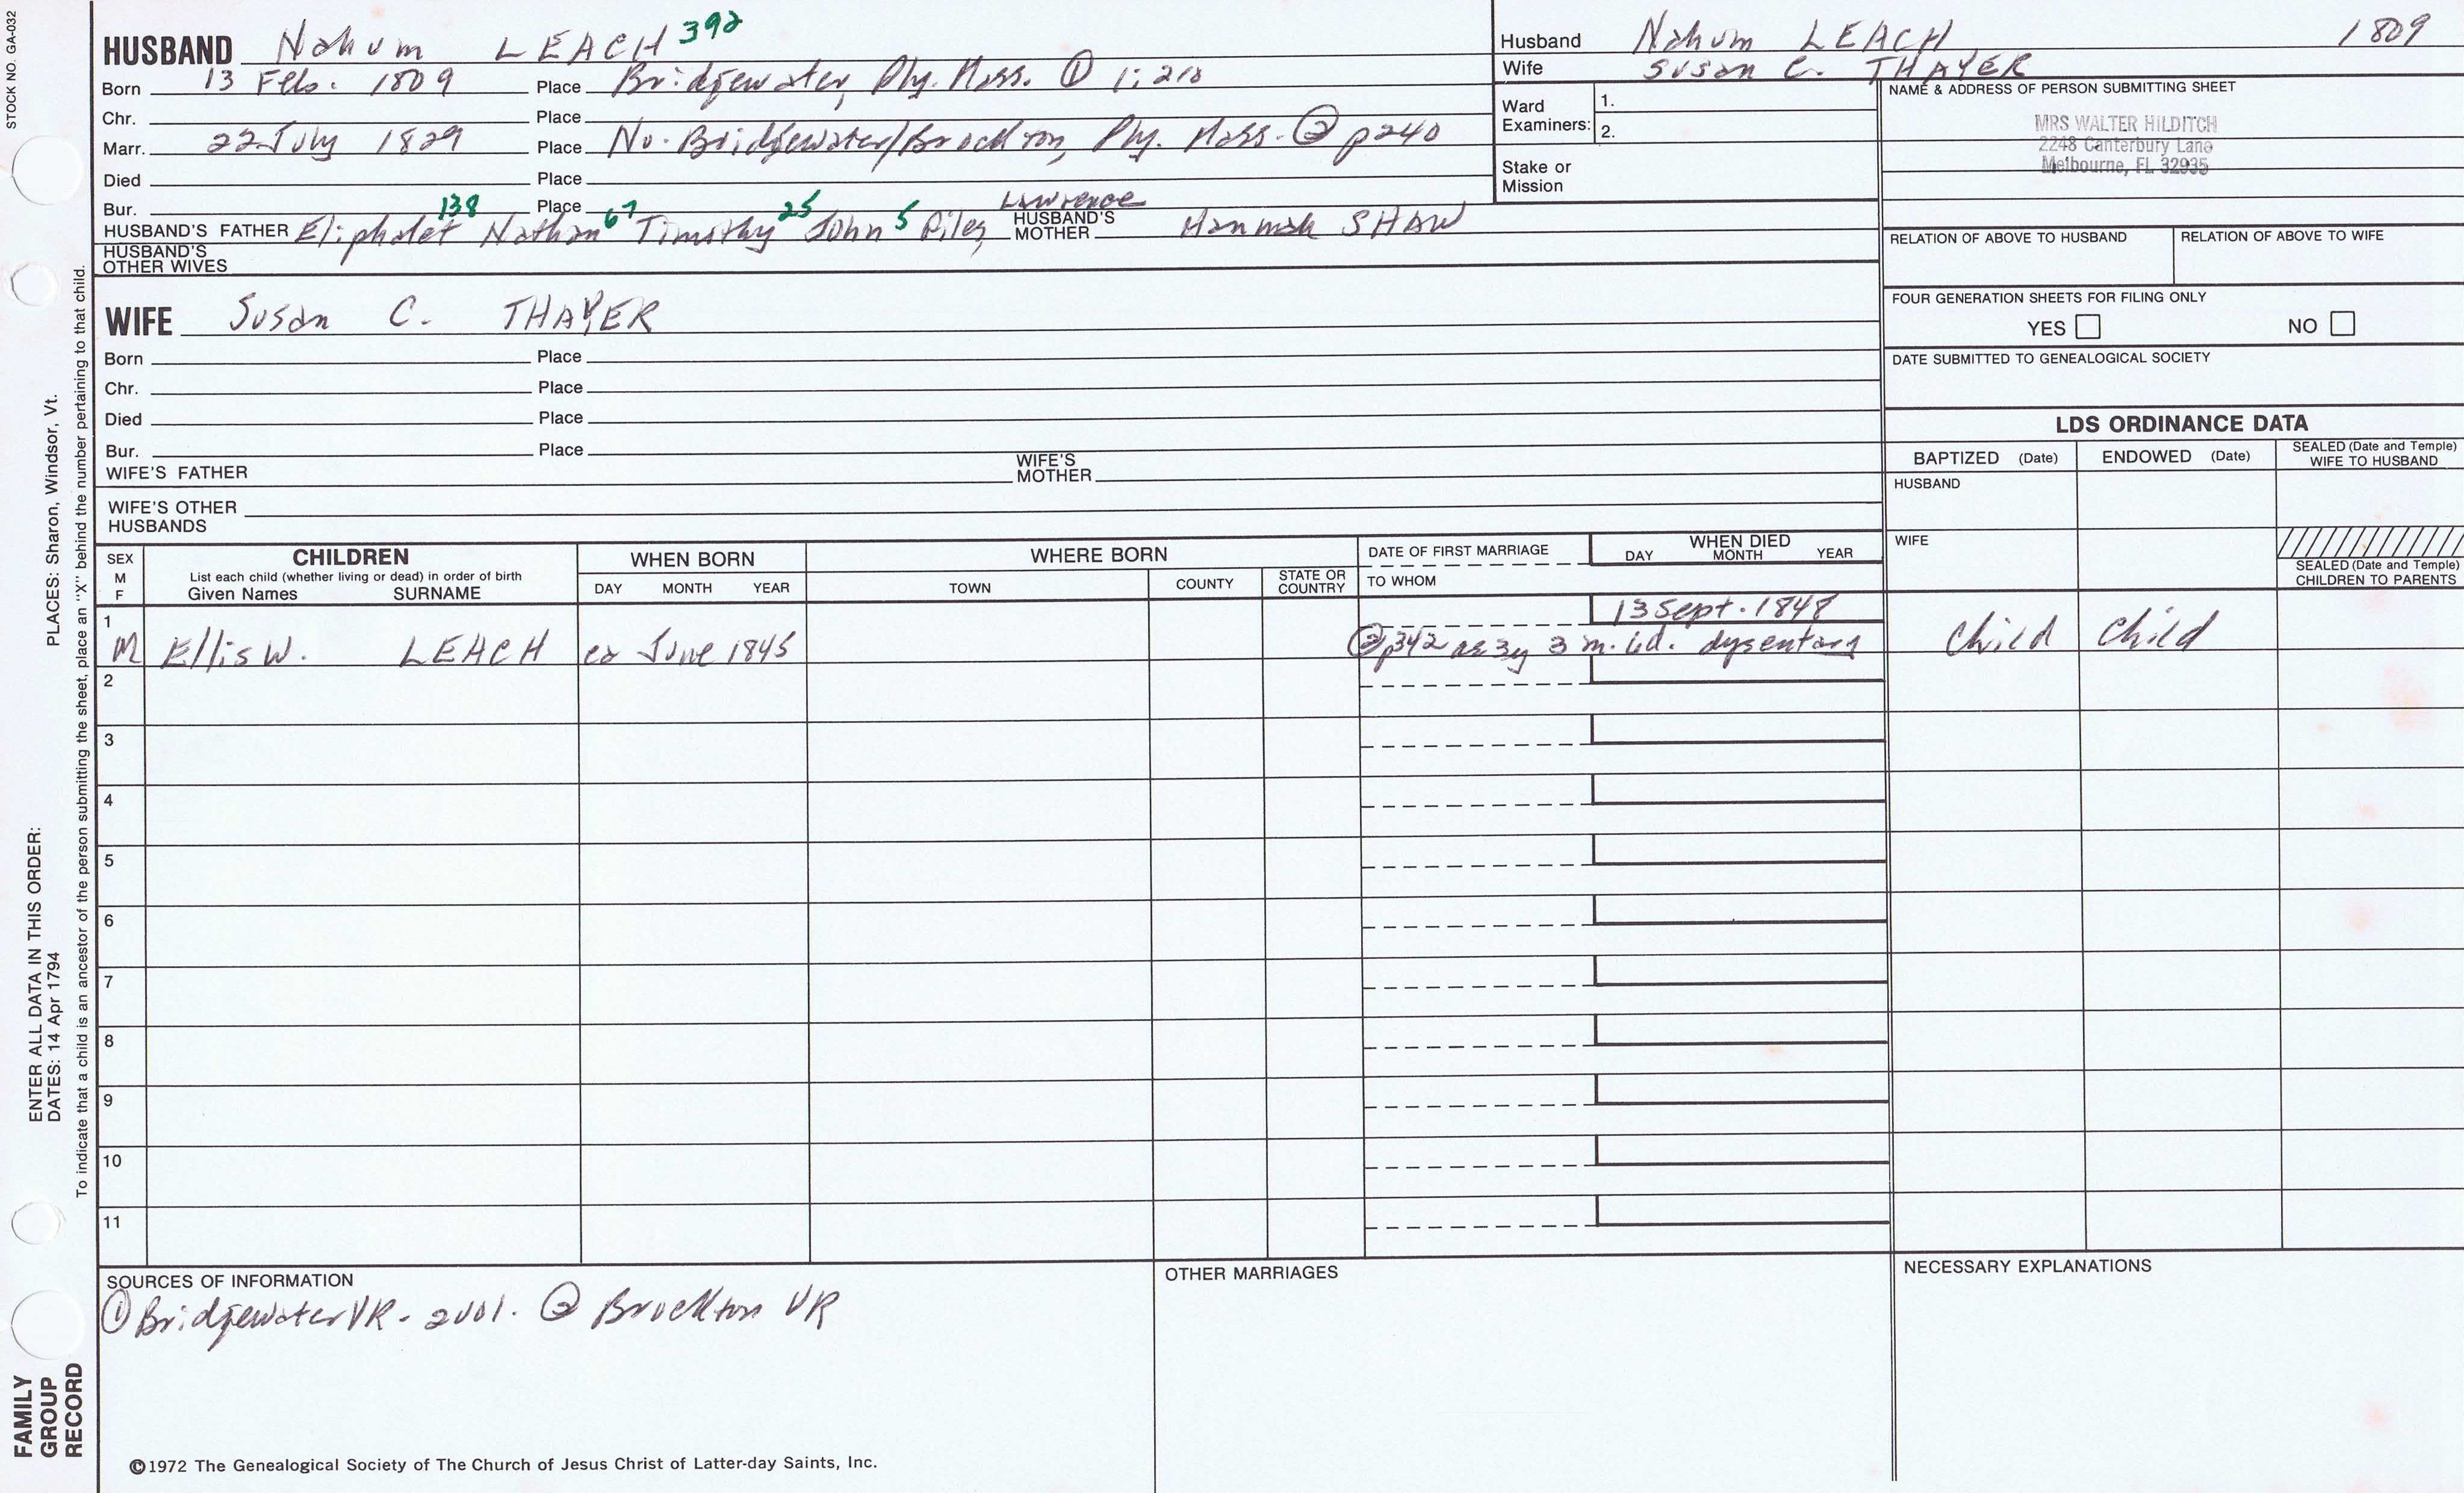 STOCK NO. GA-032
HUSBAND Nahum LEACH 392
Born 13 Feb. 1809 Place Bridgewater, Ply. Mass. ① 1:210
Chr. Place
Marr. 22 July 1829 Place No. Bridgewater/Brockton, Ply. Mass. ② p240
Died Place
Bur. Place
HUSBAND'S FATHER Eliphalet 138 Nathan 67 Timothy 25 John 5 Giles, Lawrence HUSBAND'S MOTHER Hannah SHAW
HUSBAND'S OTHER WIVES
Husband Nahum LEACH 1809
Wife Susan C. THAYER
Ward Examiners: 1.
2.
Stake or Mission
NAME & ADDRESS OF PERSON SUBMITTING SHEET
MRS WALTER HILDITCH
2248 Canterbury Lane
Melbourne, FL 32935
RELATION OF ABOVE TO HUSBAND RELATION OF ABOVE TO WIFE
FOUR GENERATION SHEETS FOR FILING ONLY
YES NO
DATE SUBMITTED TO GENEALOGICAL SOCIETY
WIFE Susan C. THAYER
Born Place
Chr. Place
Died Place
Bur. Place
WIFE'S FATHER WIFE'S MOTHER
WIFE'S OTHER HUSBANDS
LDS ORDINANCE DATA
BAPTIZED (Date) ENDOWED (Date) SEALED (Date and Temple) WIFE TO HUSBAND
HUSBAND
WIFE
SEALED (Date and Temple) CHILDREN TO PARENTS
SEX M F
CHILDREN
List each child (whether living or dead) in order of birth
Given Names SURNAME
WHEN BORN
DAY MONTH YEAR
WHERE BORN
TOWN COUNTY STATE OR COUNTRY
DATE OF FIRST MARRIAGE
TO WHOM
WHEN DIED
DAY MONTH YEAR
1 13 Sept. 1848
M Ellis W. LEACH ca June 1845 ② p342 ae 3y 3 m. 4d. dysentary Child Child
2
3
4
5
6
7
8
9
10
11
SOURCES OF INFORMATION
① Bridgewater VR - 2vol. ② Brockton VR
OTHER MARRIAGES
NECESSARY EXPLANATIONS
©1972 The Genealogical Society of The Church of Jesus Christ of Latter-day Saints, Inc.
FAMILY
GROUP
RECORD
ENTER ALL DATA IN THIS ORDER:
DATES: 14 Apr 1794 PLACES: Sharon, Windsor, Vt.
To indicate that a child is an ancestor of the person submitting the sheet, place an "X" behind the number pertaining to that child.